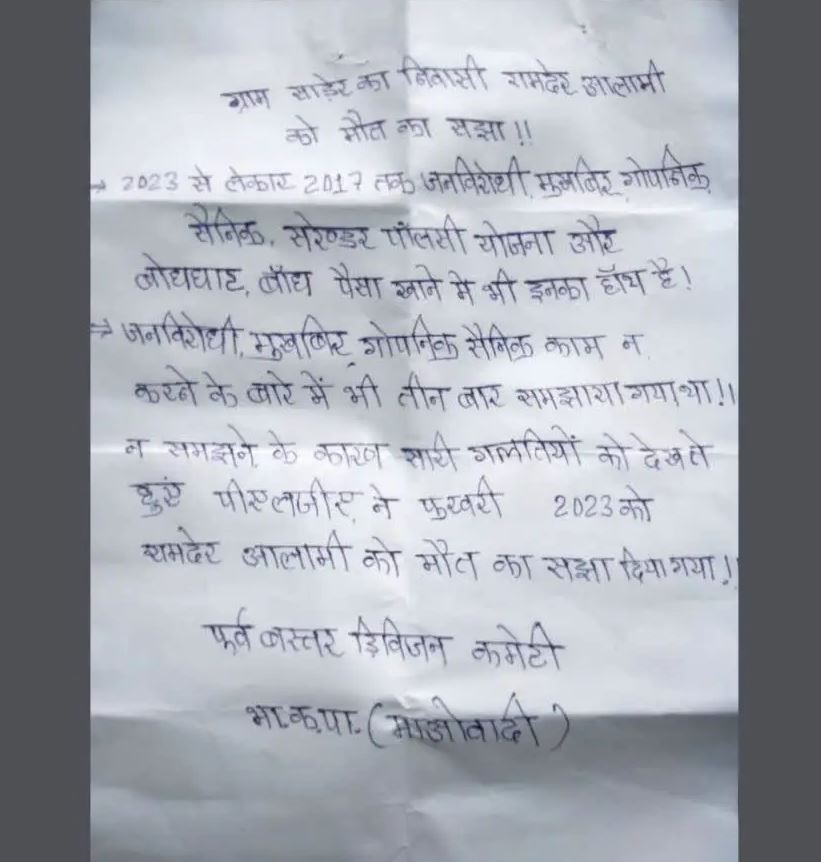 ग्राम साड़ेर का निवासी रामदेर आलामी
को मौत का सझा !!
→ 2023 से लेकार 2017 तक जनविरोधी, मुखबिर, गोपनिक
सैनिक, सरेण्डर पॉलसी योजना और
बोधघाट, बॉध पैसा खाने मे भी इनका हॉथ है!
⇒ जनविरोधी, मुखबिर, गोपनिक सैनिक काम न
करने के बारे में भी तीन बार समझाया गया था !!
न समझने के कारण सारी गलतियों को देखते
हुएं पीएलजीए ने फुरवरी 2023 को
रामदेर आलामी को मौत का सझा दिया गया !!
पूर्व बस्तर डिविजन कमेटी
भा.क.पा. (माओवादी)